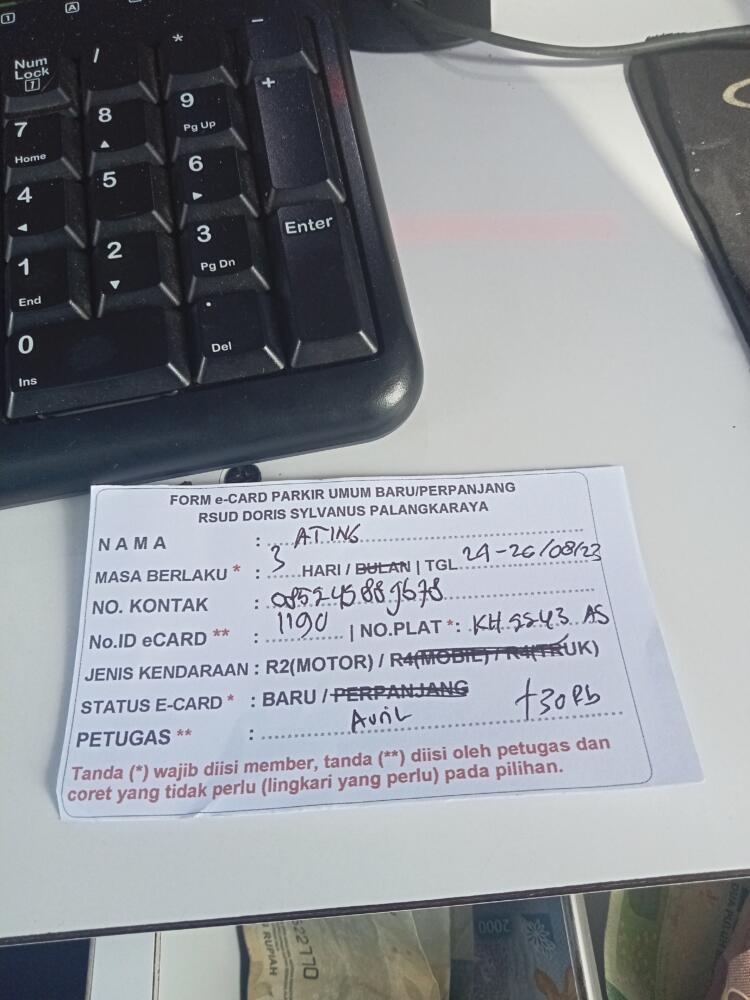 1
A
Num Lock 1
/
*
-
+
7 Home
8
9 Pg Up
4
5
6
1 End
2
3 Pg Dn
Enter
0 Ins
. Del
FORM e-CARD PARKIR UMUM BARU/PERPANJANG
RSUD DORIS SYLVANUS PALANGKARAYA
NAMA : ATING
MASA BERLAKU * : 3 HARI / BULAN | TGL 24-26/08/23
NO. KONTAK :
No.ID eCARD ** : 1190 | NO.PLAT *: KH 2543 AS
JENIS KENDARAAN : R2(MOTOR) / R4(MOBIL) / R4(TRUK)
STATUS E-CARD * : BARU / PERPANJANG
+30Rb
PETUGAS ** : Avril
Tanda (*) wajib diisi member, tanda (**) diisi oleh petugas dan
coret yang tidak perlu (lingkari yang perlu) pada pilihan.
522770
RUPIAH
2000